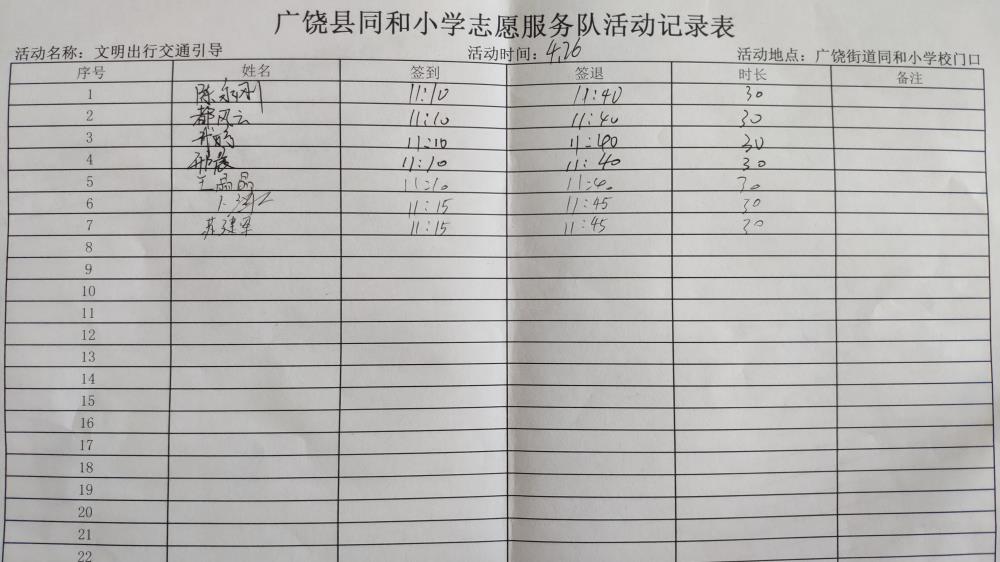 广饶县同和小学志愿服务队活动记录表
活动名称：文明出行交通引导 活动时间：4.26 活动地点：广饶街道同和小学校门口
序号 姓名 签到 签退 时长 备注
1 陈永刚 11:10 11:40 30
2 都风云 11:10 11:40 30
3 11:10 11:40 30
4 11:10 11:40 30
5 王晶晶 11:10 11:40 30
6 11:15 11:45 30
7 苏建军 11:15 11:45 30
8
9
10
11
12
13
14
15
16
17
18
19
20
21
22